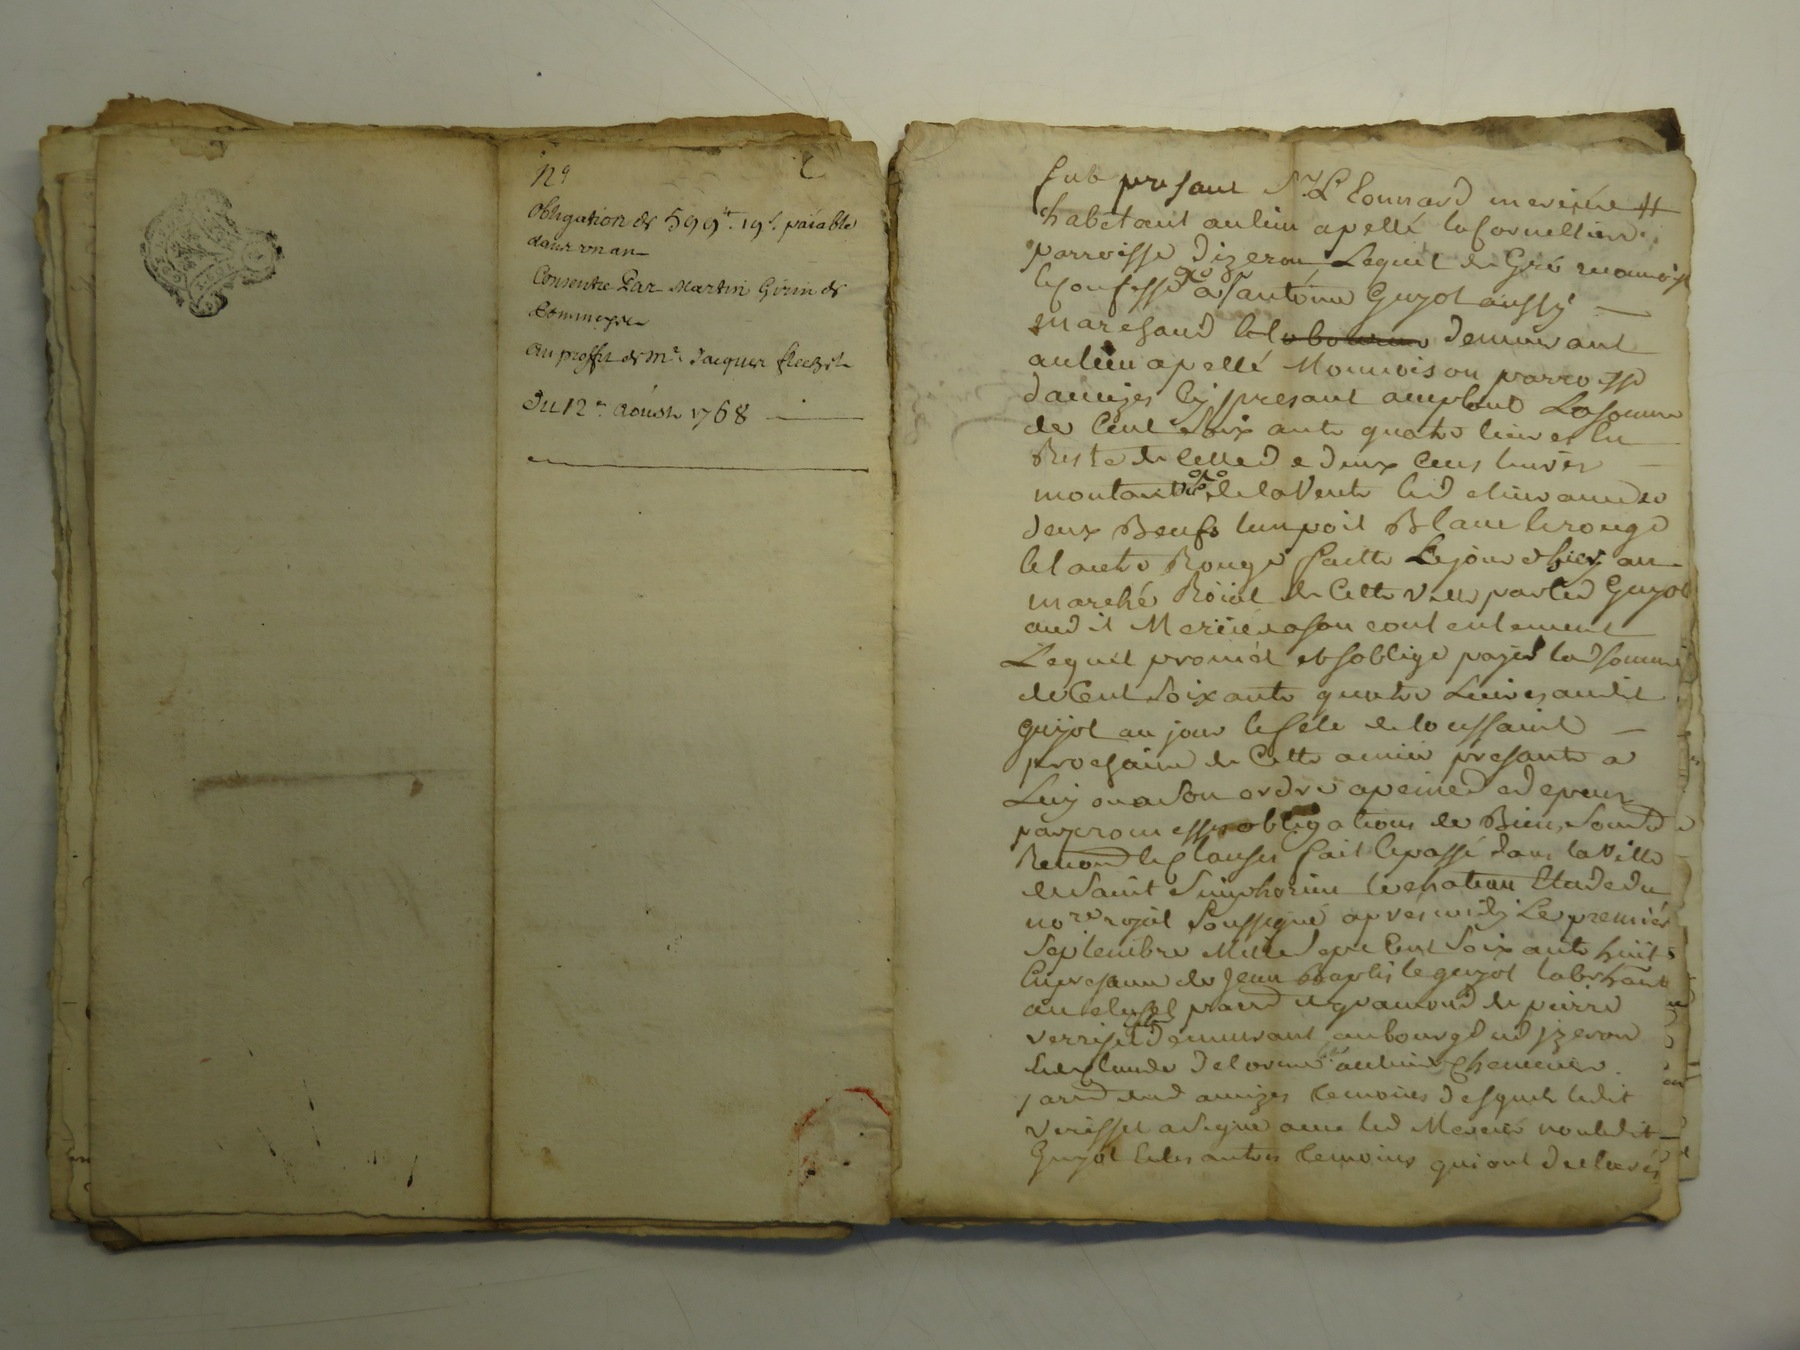 n°
Obligation de 599lt. 19s. païable
dans un an
Consentie Par Martin Girin de
Pommeyse
Au proffit de Mr. Jacques
Du 12e Aoust 1768
fut presant Sr. Leonnard merciere #
habetant au lieu apellé la fornettiere
parroisse dizeron Lequel de Gré
confesse a antoine Guyot aussy
marchand demeurant
au lieu apellé Monnoison parroisse
daveizes Cy presant la somme
de Cent Soix ante quatre livres
Reste de Celle de deux Cens livres
montant de la Vente
deux Beufs lun poil Blanc et rouge
et lautre Rouge faitte Le jour dhier au
marché Roïal de Cette Ville par led Guyot
aud it Merciere a son contentement
Lequel promet et soblige payer lad somme
de Cent Soix ante quatre Livres audit
Guyot au jour et fete de toussaint
prochaine de Cette année presante a
Luy ou a Son ordre a peine de depens
par promesses obligations de Biens
Renond et Clauses fait et passé dans la Ville
de Saint Simphorien le chateau Etude du
nore royal Soussigné aprés midy Le premiér
Septembre Mille Sept Cent Soix ante huit
En presance de Jean Baptiste guyot
de pierre
demeurant au bourg dud izeron
Claude delorme au lieu
parr dud aveizes temoins desquels ledit
a Signé avec led Mercier non ledit
Guyot et les autres temoins qui ont declarés